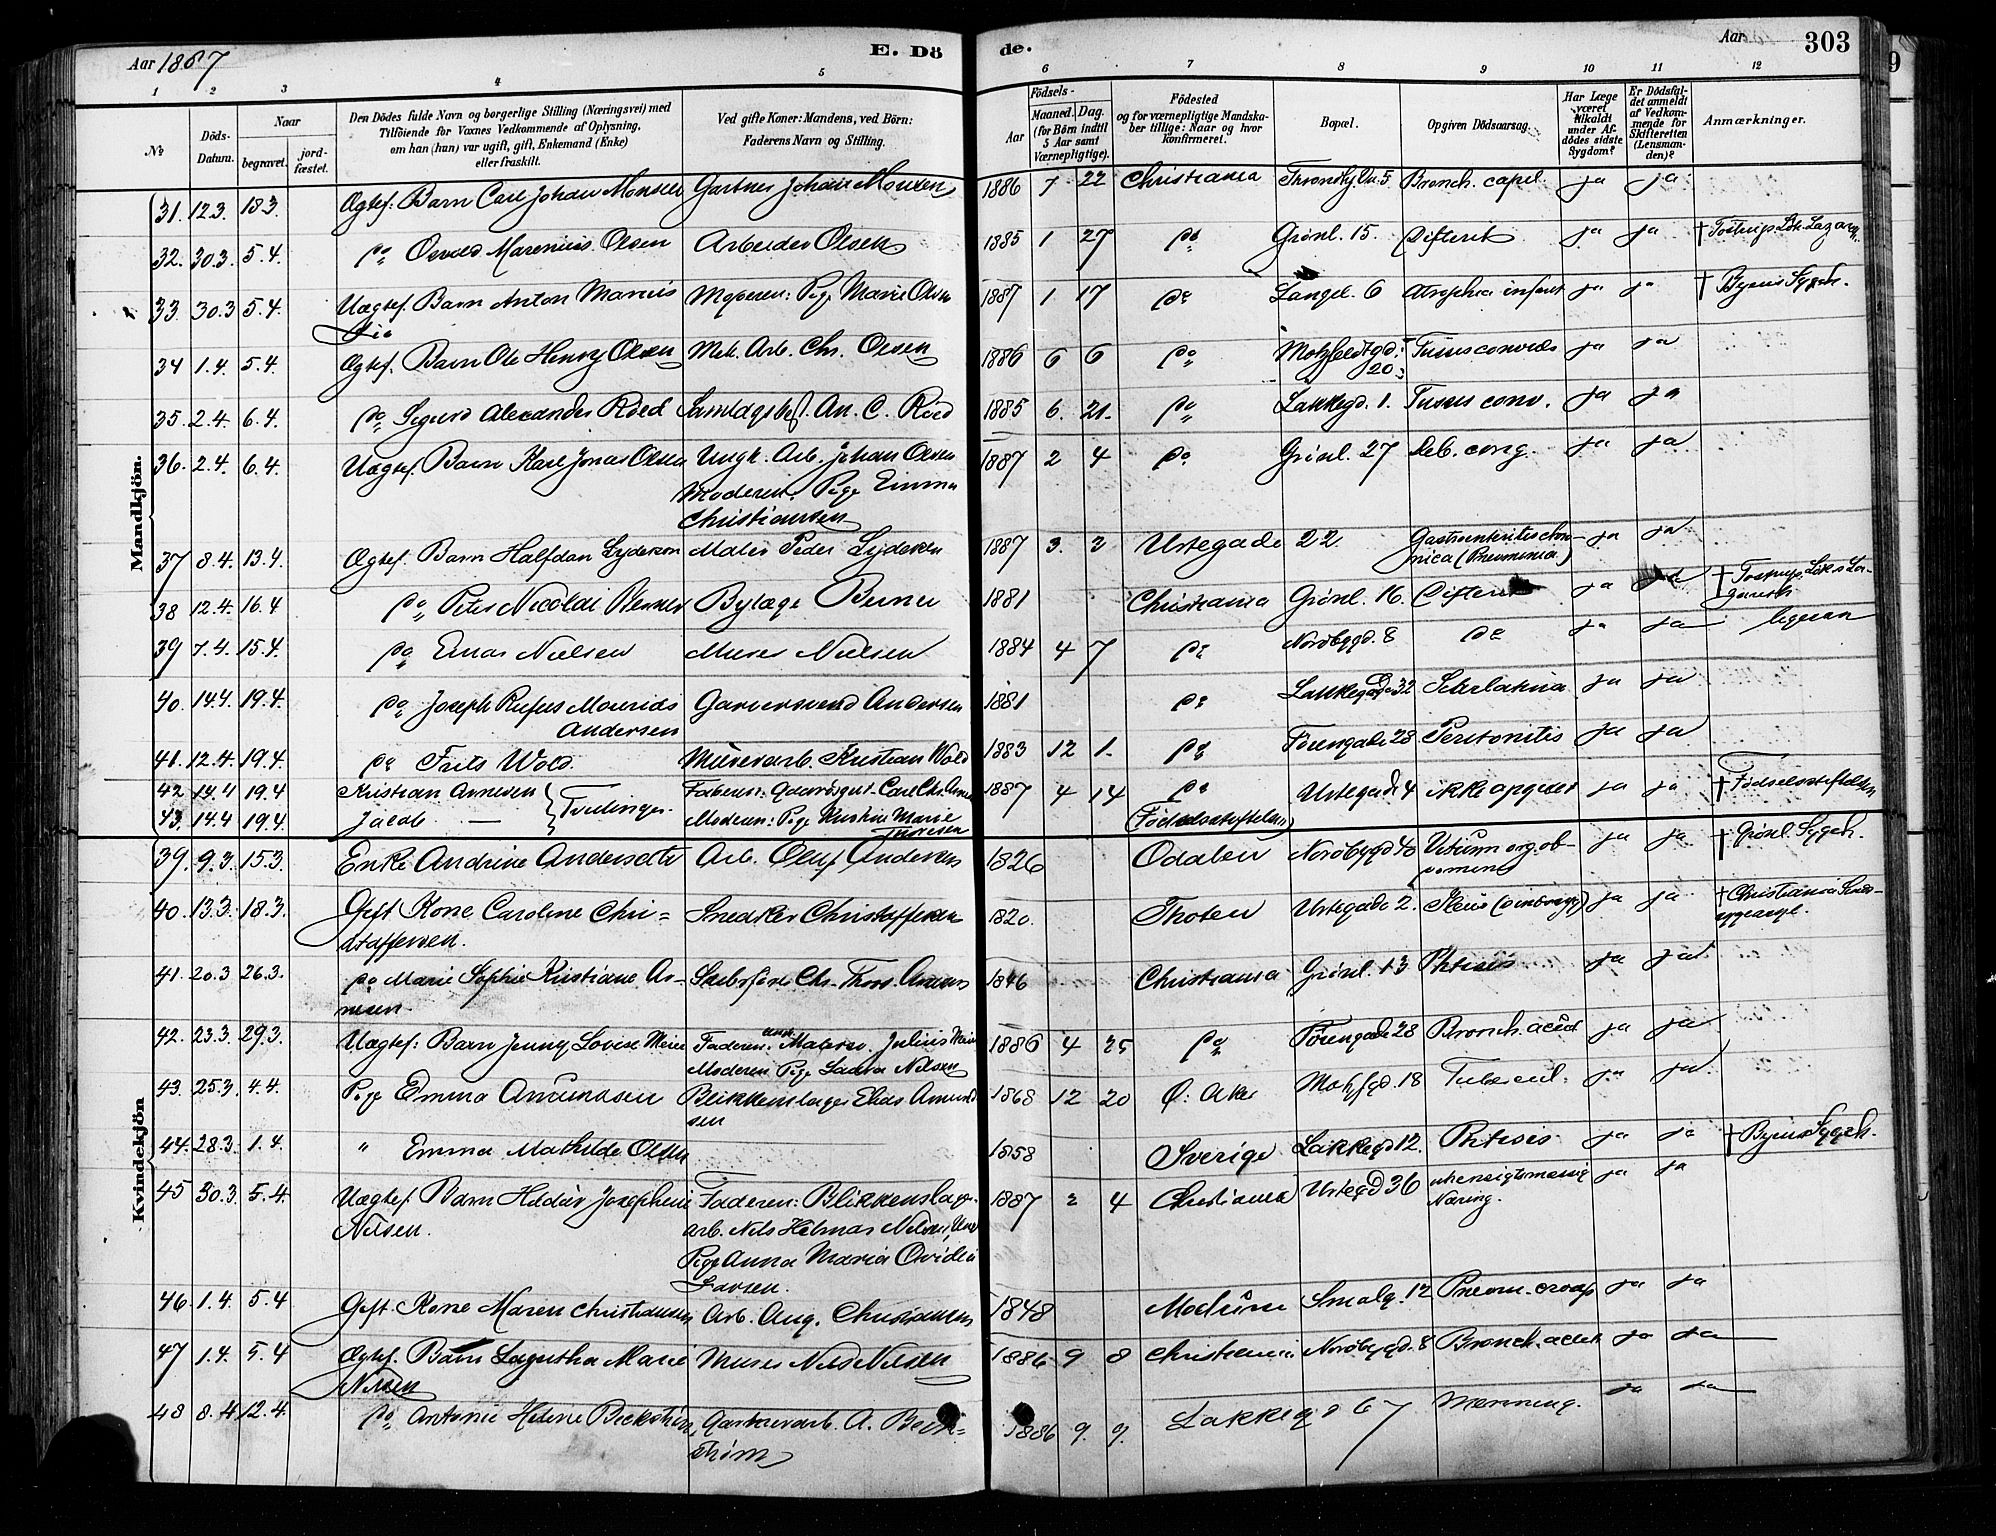 Aar 1887 E. Dö de. Aar 303
1 2 3 4 5 6 7 8 9 10 11 12
No Döds-Datum. Naar begravet. jordfæstet. Den Dödes fulde Navn og borgerlige Stilling (Næringsvei) med Tilföiende for Voxnes Vedkommende af Oplysning, om han (hun) var ugift, gift, Enkemand (Enke) eller fraskilt. Ved gifte Koner: Mandens, ved Börn: Faderens Navn og Stilling. Födsels- Aar Maaned. Dag. (for Börn indtil 5 Aar samt Værnepligtige). Födested og for værnepligtige Mandskaber tillige: Naar og hvor konfirmeret. Bopæl. Opgiven Dödsaarsag. Har Læge været tilkaldt under Afdödes sidste Sygdom? Er Dödsfaldet anmeldt af Vedkommende for Skifteretten (Lensmanden)? Anmærkninger.
Mandkjön.
31. 12.3. 18.3. Ægtef. Barn Carl Johan Monsen Gartner Johan Monsen 1886 7 22 Christiania Throndhj.vn. 5 Bronch. capil. ja ja
32. 30.3. 5.4. do Osvald Marenius Olsen Arbeider Olsen 1885 1 27 do Grönl. 15. Difterit ja ja † Tostrup Löks Lazareth
33. 30.3 5.4. Uægtef. Barn Anton Marius Moderen: Pige Marie Olsen 1887 1 17 do Langel. 6 Atrophia infant ja ja † Byens Sygeh.
Lie
34 1.4. 5.4. Ægtef. Barn Ole Henry Olsen Mek. Arb. Chr. Olsen 1886 6 6 do Motzfeldtgd. 20 Tussis convuls ja ja
35. 2.4. 6.4. do Sigurd Alexander Röed An. C. Röed 1885 6. 21. do Lakkegd. 1. Tussis conv. ja ja
36. 2.4. 6.4. Uægtef. Barn Karl Jonas Olsen Ungk. Arb. Johan Olsen 1887 2 4 do Grönl. 27 Deb. cong. ja ja
Moderen: Pige Emma
Christiansen
37 8.4. 13.4. Ægtef. Barn Halfdan Lydersen Maler Peder Lydersen 1887 3. 2 Urtegade 22. Gastroenteritis chronica (Pneumonia) ja ja
38 12.4. 16.4 do Peter Nicolai Berner Bylæge Berner 1881 Christiania Grönl. 16 Difterit ja ja † Tostrup Löks Lazareth
39 7.4. 15.4. do Einar Nielsen Murer Nielsen 1884 4 7 do Nordbygd. 8 do ja ja ligesaa
40. 14.4. 19.4. do Joseph Rufus Mourids Garversvend Andersen 1881 do Lakkegade 32 Scharlatina ja ja
Andersen
41. 12.4. 19.4. do Frits Wold. Murerarb. Kristian Wold 1883 12 1. do Töiengade 28 Peritonitis ja ja
42 14.4 19.4 Kristian Arnesen Faderen: Carl Chr. 1887 4 14 do Urtegade 4 ikke opgivet ja ja † Födselsstiftelsen
43. 14.4 19.4 Jacob — Tvillinger. Moderen: Pige Kristine Marie Thoresen (Födselsstiftelsen)
Kvindekjön
39. 9.3. 15.3. Enke Andrine Andersdtr Arb. Oluf Andersen 1826 Odalen Nordbygd 48 Vitium org. ja ja † Grönl. Sygeh.
40. 13.3. 18.3. Gift Kone Caroline Chri- Snedker Christoffersen 1820. Thoten Urtegade 2. Ileus ja ja † Christiania
stoffersen.
41. 20.3 26.3. do Marie Sophie Kristiane Ar- Skibsförer Chr. Thors. Arnesen 1846 Christiania Grönl. 13 Phtisis ja ja
nesen.
42. 23.3. 29.3. Uægtef: Barn Jenny Lovise Meier Faderen: Julius Meier 1886 4 25 do Töiengade 28 Bronch. acut ja ja
Moderen Pige Laura Nilsen
43. 25.3. 4.4. Pige Emma Amundsen Blikkenslager Elias Amund- 1868 12 20 Ö. Aker Motzfgd. 18 Tubercul. ja ja
sen
44. 28.3. 1.4. " Emma Mathilde Olsen 1858 Sverige Lakkegd 12. Phtisis. ja ja † Byens Sygeh.
45 30.3. 5.4. Uægtef. Barn Hildur Josephine Faderen: Blikkenslager- 1887 2 4 Christiania Urtegd 36 uhensigtsmæssig ja ja
Nilsen. arb. Nils Helmar Nilsen Næring.
Pige Anna Maria Ovidia
Larsen.
46. 1.4. 5.4 Gift Kone Maren Christiansen Arb. Aug. Christiansen 1848 Modum Smalg. 12 Pneum. croup ja ja
47 1.4. 5.4 Ægtef. Barn Lagertha Marie Murer Nils Nilsen 1886 9 8 Christiania Nordbygd. 8 Bronch. acut ja ja
Nilsen
48 8.4 12.4. do Antonie Helene Beckström Gartnerarb. A. Beck- 1886 9. 9. Lakkegd 67 Menning. ja ja
ström